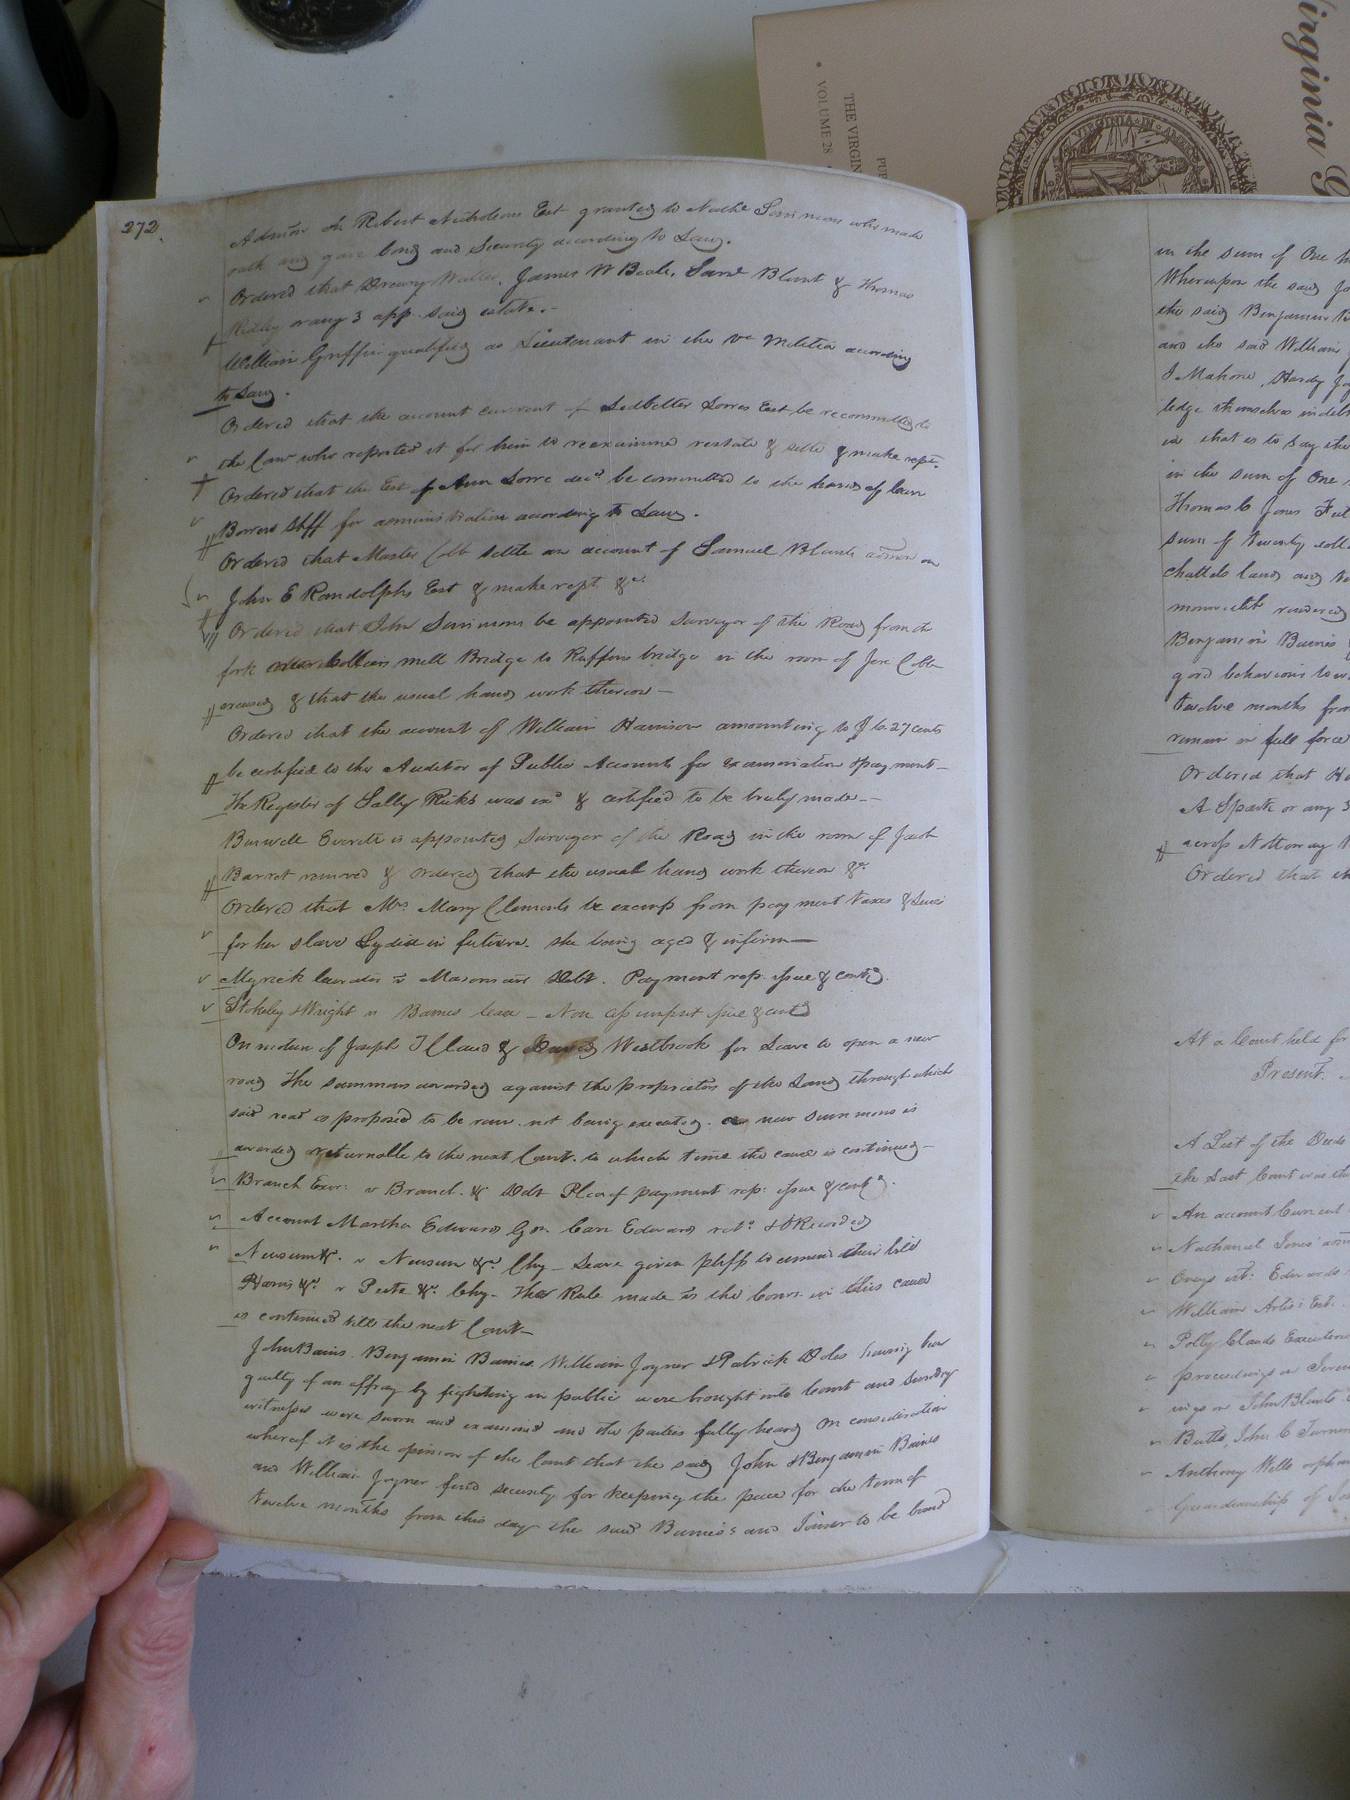 irginia G
THE VIRGIN
VOLUME 28
PU
VIRGINIA · DI · AR
272
Admōn on Robert Nicholsons Est granted to Nathl Simmons who made
oath and gave bond and Security according to Law.
Ordered that Drewry Waller, James W Beale, Saml Blunt & Thomas
Ridley or any 3 app. said estate.-
William Griffin qualified as Lieutenant in the Va Militia according
to Law.
Ordered that the account current of Ledbetter Lorres Est be recommitted to
the Com who reported it for him to reexamine restate & settle & make rept.
Ordered that the Est of Ann Lorre decd be committed to the hands of
Borrow Shff for administration according to Law.
Ordered that Master Cobb settle an account of Samuel Blunts admōn on
John E Randolphs Est & make rept &c
Ordered that John Simmons be appointed Surveyor of the Road from the
fork mill Bridge to Ruffins bridge in the room of Jere Cobb
excused & that the usual hands work thereon —
Ordered that the account of William Harrison amounting to $ 6.27 cents
be certified to the Auditor of Public Accounts for examination & payment —
The Register of Sally Ricks was exd & certified to be truly made —
Burwell Everett is appointed Surveyor of the Road in the room of Jacob
Barrot removed & ordered that the usual hands work thereon &c
Ordered that Mrs Mary Clements be exempt from payment taxes & Levies
for her slave Lydia in future. she being aged & infirm —
Myrick v Masons Debt. Payment rep. issue & contd.
Stokeley & Wright v Barnes Case — Non assumpsit issue & contd
On motion of Joseph T Claud & David Westbrook for Leave to open a new
road The summons awarded against the proprietors of the Land through which
said road is proposed to be run. not being executed. a new summons is
awarded returnable to the next Court. to which time the cause is continued —
Branch Exor: v Branch. &c Debt Plea of payment rep: issue & contd.
Account Martha Edwards Gn. Edwards retd & ORecorded
Newsum &c. v Newsum &c. Chy — Leave given pltff to amend their bill
Harris &c v Peete &c. Chy — The Rule made in the Court in this cause
is continued till the next Court —
John Baines. Benjamin Baines. William Joyner & Patrick Doles having been
guilty of an affray by fighting in public were brought into Court and sundry
witnesses were sworn and examined and the parties fully heard On consideration
whereof it is the opinion of the Court that the said John & Benjamin Baines
and William Joyner find security for keeping the peace for the term of
twelve months from this day the said Baines's and Joiner to be bound
in the sum of One h
Whereupon the said Jo
the said Benjamin
and the said William
J Mahone, Hardy Jo
ledge themselves indeb
is that is to say the
in the sum of One
Thomas C Jones
sum of twenty doll
chattels land and t
rendered
Benjamin Baines
good behaviour tow
twelve months from
remain in full force
Ordered that
A Spark or any 3
across Nottoway
Ordered that th
At a Court held for
Present.
A List of the Deeds
the Last Court was
An account Current
Nathaniel Jones' adm
Edwards
William Artis's Est.
Polly Clauds Executor
proceedings on
ings on John Blunts
Butts, John C Turner
Anthony Wills orphan
Guardianship of